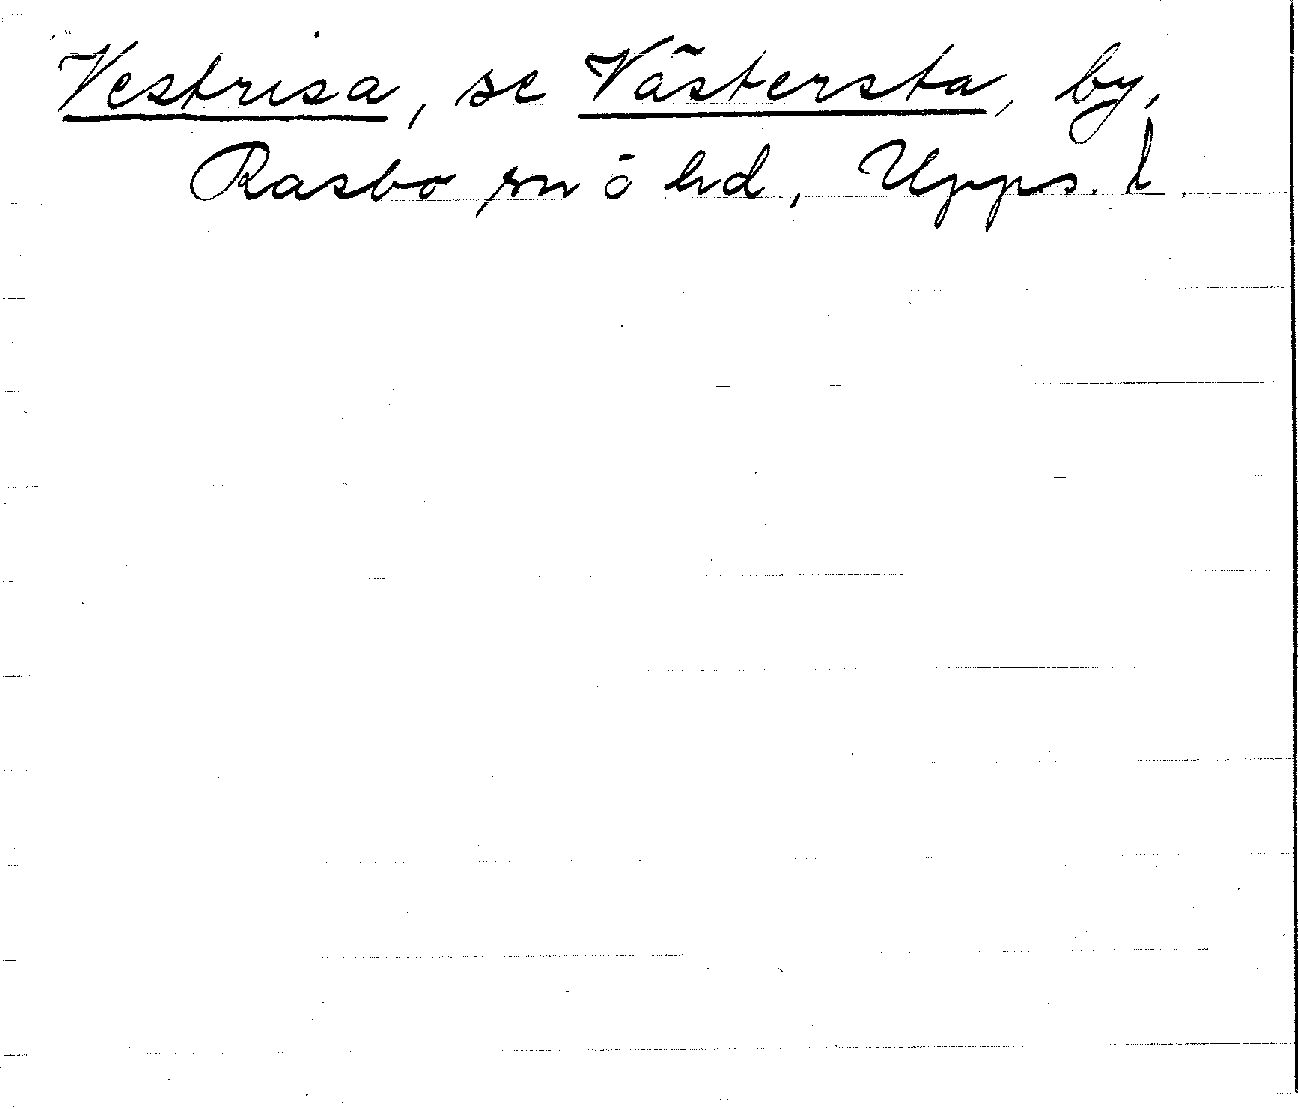 Vestrisa, se Västersta, by,
Rasbo sn o hd, Upps. l.